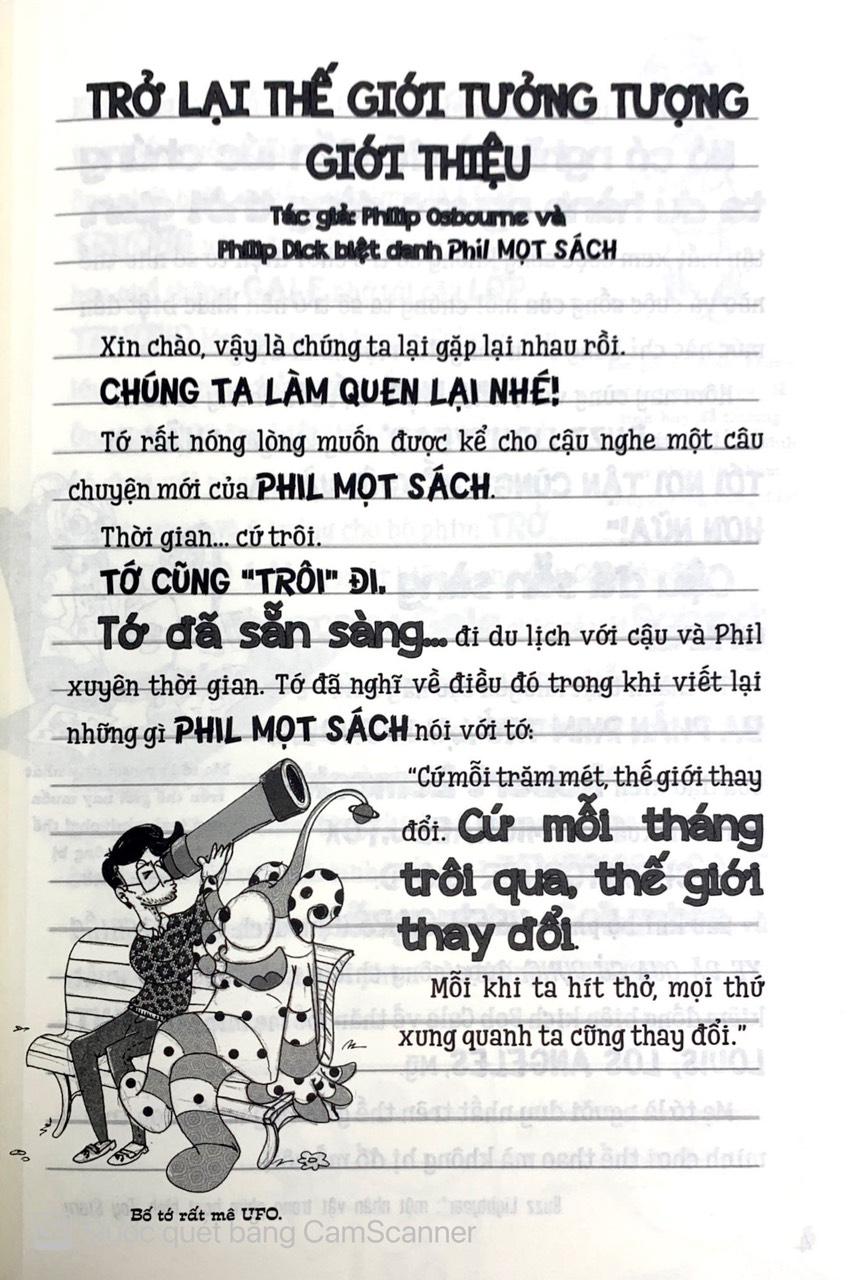 TRỞ LẠI THẾ GIỚI TƯỞNG TƯỢNG
GIỚI THIỆU
Tác giả: Philip Osbourne và
Philip Dick biệt danh Phil MỌT SÁCH
Xin chào, vậy là chúng ta lại gặp lại nhau rồi.
CHÚNG TA LÀM QUEN LẠI NHÉ!
Tớ rất nóng lòng muốn được kể cho cậu nghe một câu
chuyện mới của PHIL MỌT SÁCH.
Thời gian... cứ trôi.
TỚ CŨNG "TRÔI" ĐI.
Tớ đã sẵn sàng... đi du lịch với cậu và Phil
xuyên thời gian. Tớ đã nghĩ về điều đó trong khi viết lại
những gì PHIL MỌT SÁCH nói với tớ:
“Cứ mỗi trăm mét, thế giới thay
đổi. Cứ mỗi tháng
trôi qua, thế giới
thay đổi.
Mỗi khi ta hít thở, mọi thứ
xung quanh ta cũng thay đổi.”
Bố tớ rất mê UFO.
Được quét bằng CamScanner